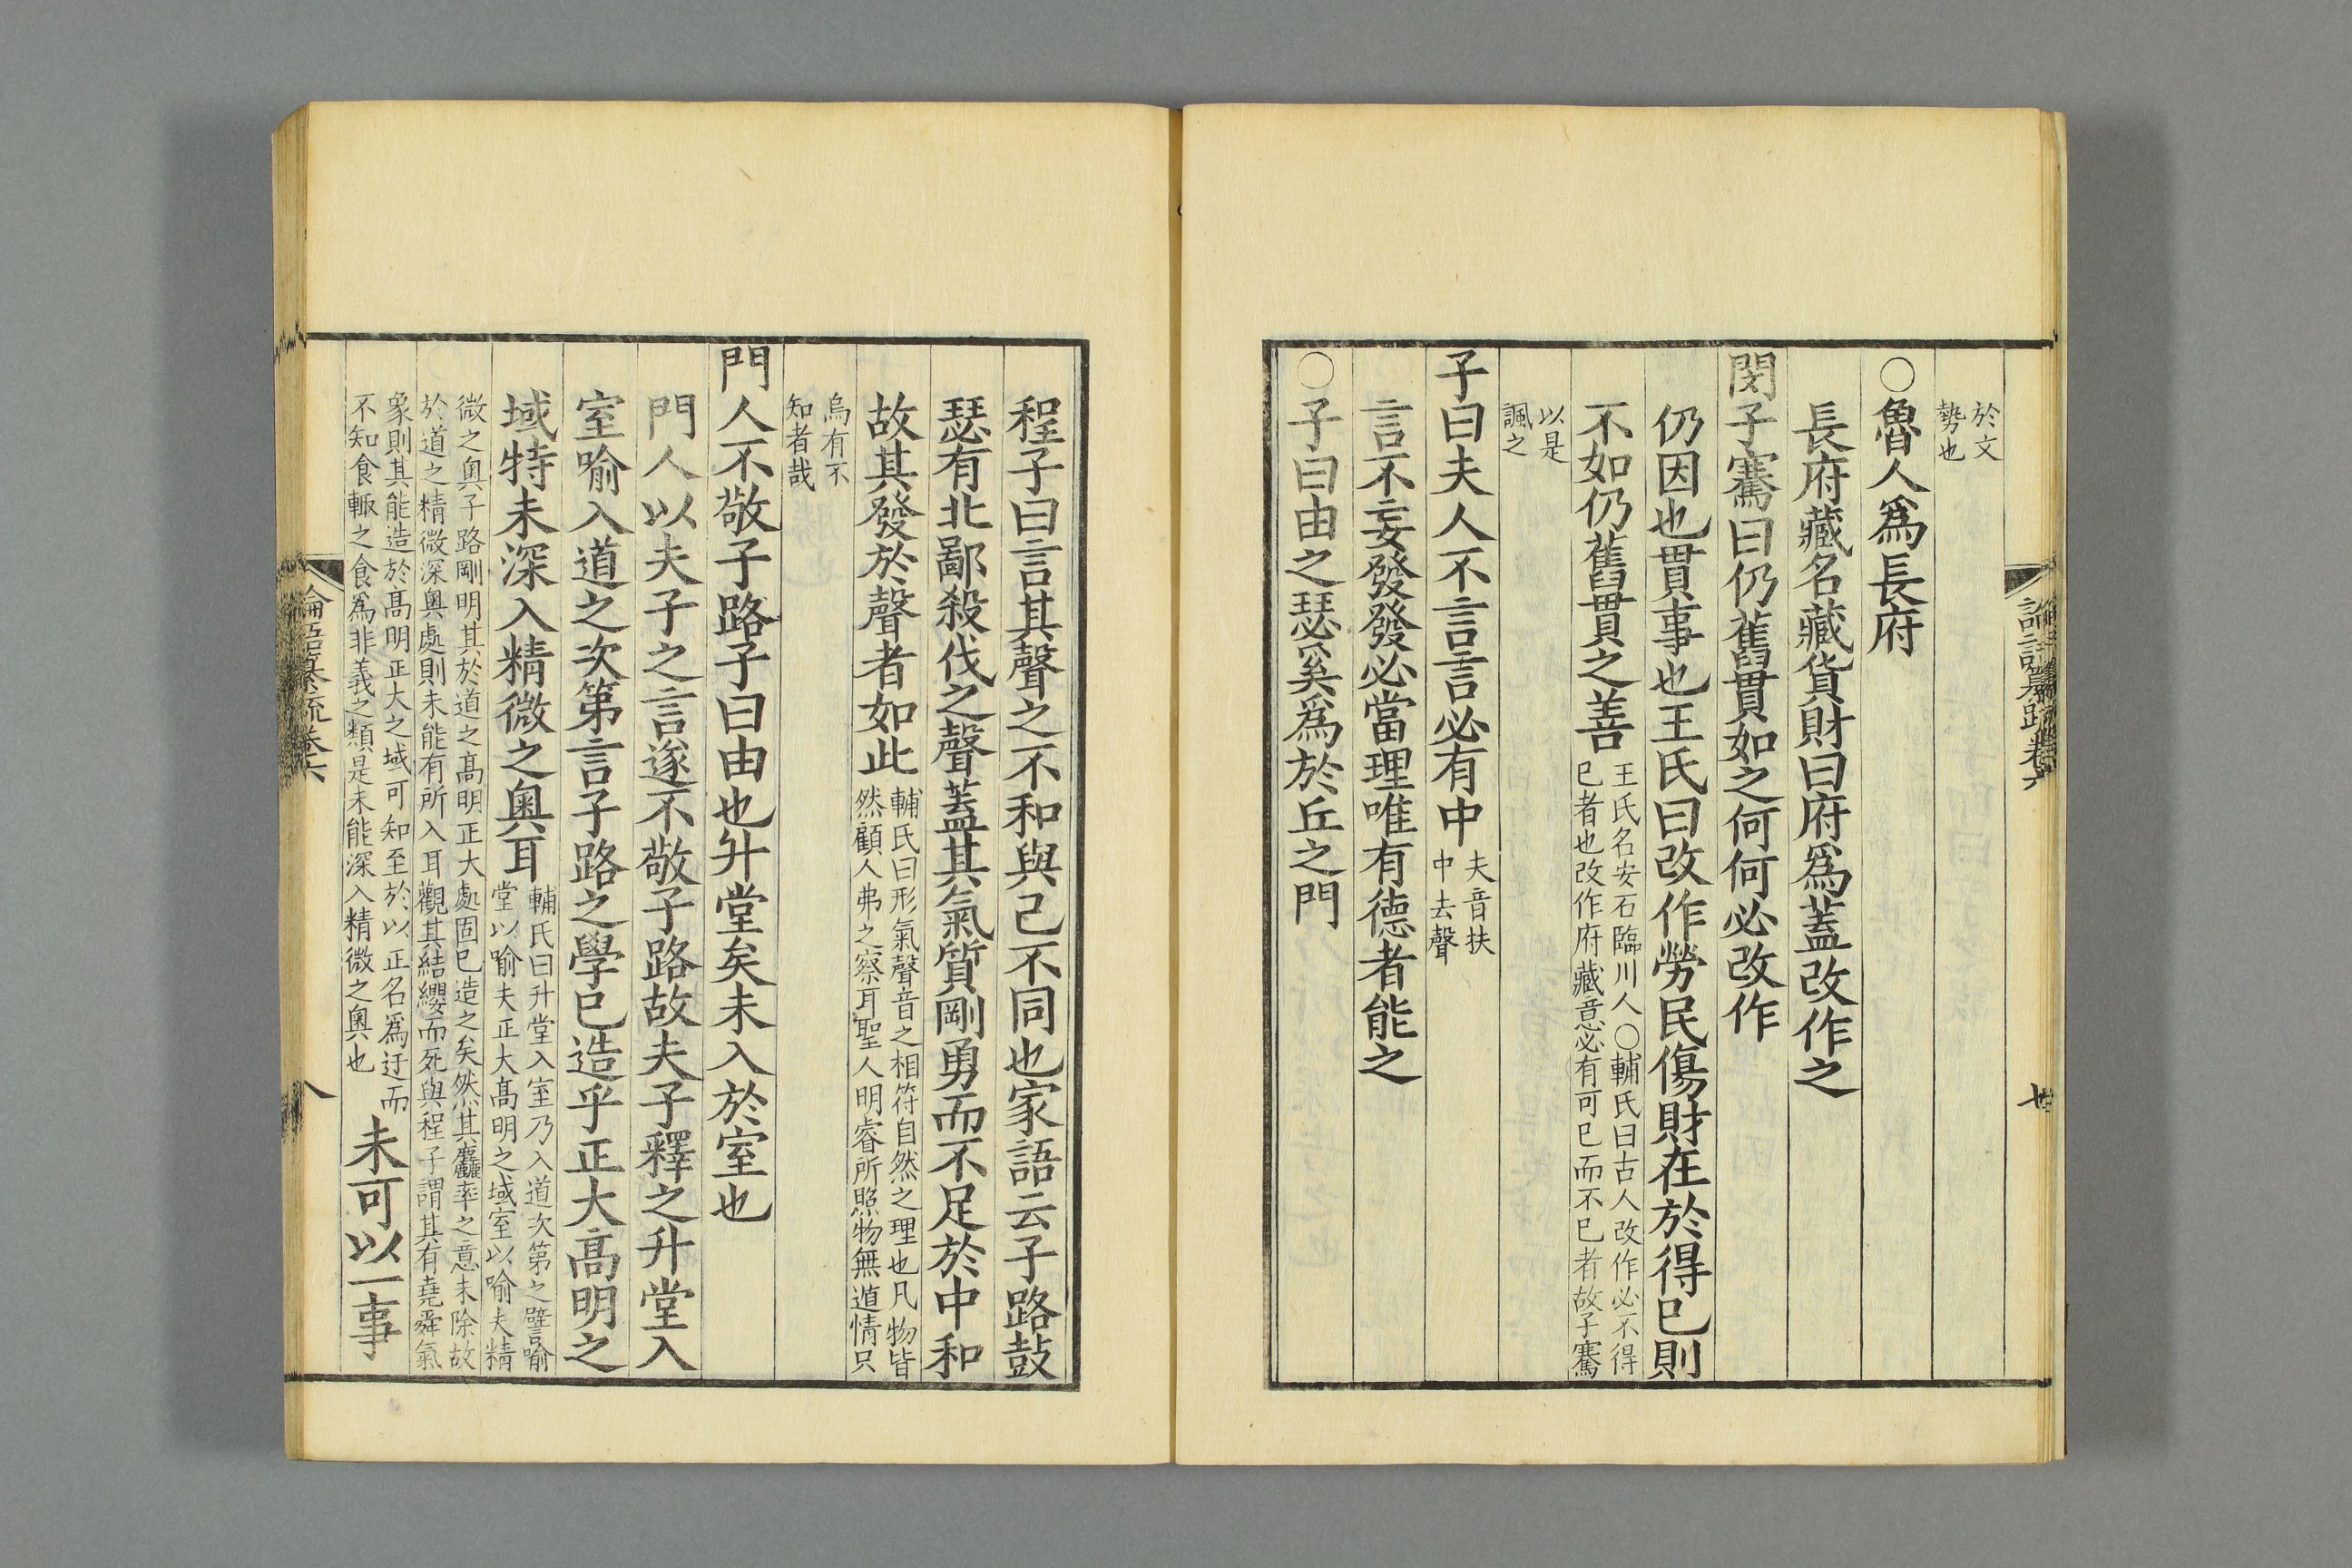 於文
勢也
○魯人爲長府
長府藏名藏貨財曰府爲蓋改作之
閔子騫曰仍舊貫如之何何必改作
仍因也貫事也王氏曰改作勞民傷財在於得已則
不如仍舊貫之善
王氏名安石臨川人○輔氏曰古人改作必不得
已者也改作府藏意必有可已而不已者故子騫
以是
諷之
子曰夫人不言言必有中
夫音扶
中去聲
言不妄發發必當理唯有德者能之
○子曰由之瑟奚爲於丘之門
程子曰言其聲之不和與己不同也家語云子路鼓
瑟有北鄙殺伐之聲蓋其氣質剛勇而不足於中和
故其發於聲者如此
輔氏曰形氣聲音之相符自然之理也凡物皆
然顧人弗之察耳聖人明睿所照物無遁情只
烏有不
知者哉
門人不敬子路子曰由也升堂矣未入於室也
門人以夫子之言遂不敬子路故夫子釋之升堂入
室喻入道之次第言子路之學已造乎正大高明之
域特未深入精微之奧耳
輔氏曰升堂入室乃入道次第之譬喻
堂以喻夫正大高明之域室以喻夫精
微之奧子路剛明其於道之高明正大處固已造之矣然其麤率之意未除故
於道之精微深奧處則未能有所入耳觀其結纓而死與程子謂其有堯舜氣
象則其能造於高明正大之域可知至於以正名爲迂而
不知食輒之食爲非義之類是未能深入精微之奧也
未可以一事
論語纂疏卷六